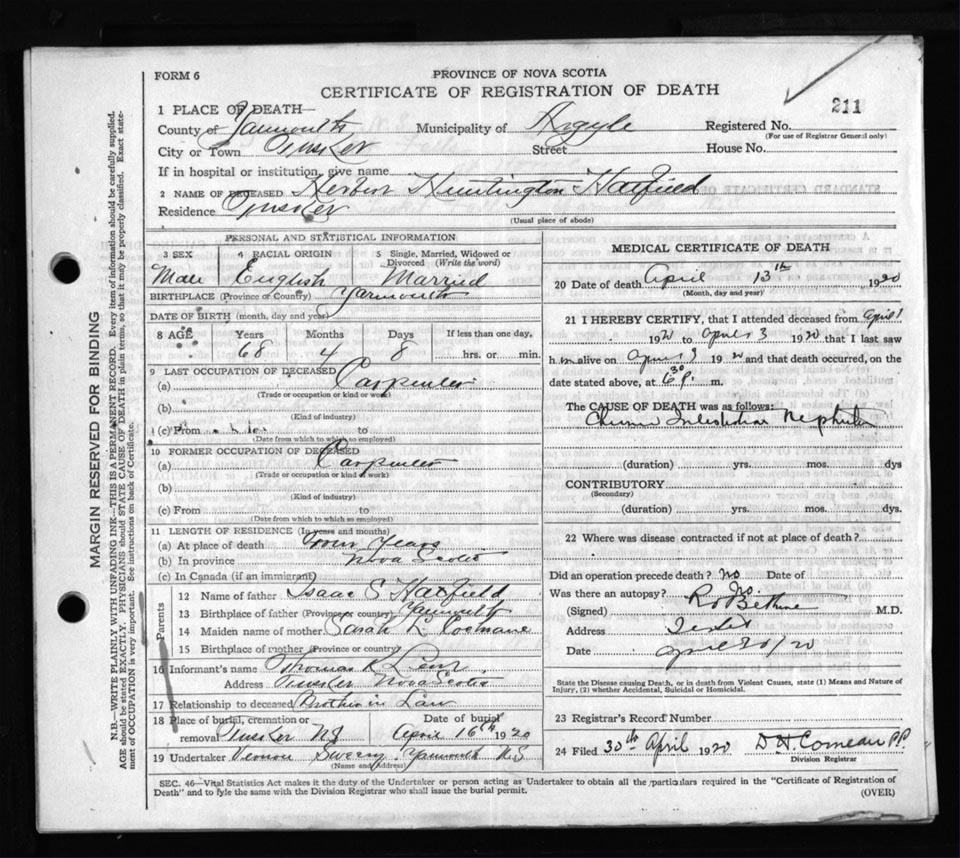 FORM 6
PROVINCE OF NOVA SCOTIA
CERTIFICATE OF REGISTRATION OF DEATH
211
1 PLACE OF DEATH
County of Yarmouth Municipality of Argyle Registered No.
(For use of Registrar General only)
City or Town Tusket Street House No.
If in hospital or institution, give name
2 NAME OF DECEASED Huntington Hatfield
Residence Tusket
(Usual place of abode)
PERSONAL AND STATISTICAL INFORMATION
3 SEX 4 RACIAL ORIGIN 5 Single, Married, Widowed or Divorced (Write the word)
Male English Married
BIRTHPLACE (Province or Country) Yarmouth
DATE OF BIRTH (month, day and year)
8 AGE Years Months Days If less than one day,
68 4 8 hrs. or min.
9 LAST OCCUPATION OF DECEASED
(a) Carpenter
(Trade or occupation or kind of work)
(b)
(Kind of industry)
(c) From to
(Date from which to which so employed)
10 FORMER OCCUPATION OF DECEASED
(a) Carpenter
(Trade or occupation or kind of work)
(b)
(Kind of industry)
(c) From to
(Date from which to which so employed)
11 LENGTH OF RESIDENCE (In years and months)
(a) At place of death Four Years
(b) In province Nova Scotia
(c) In Canada (if an immigrant)
Parents
12 Name of father Isaac S Hatfield
13 Birthplace of father (Province or country) Yarmouth
14 Maiden name of mother Sarah
15 Birthplace of mother (Province or country)
16 Informant's name Thomas K Lent
Address Tusket Nova Scotia
17 Relationship to deceased Brother in Law
18 Place of burial, cremation or removal Tusket NS Date of burial April 16th 1920
19 Undertaker Vernon Sweeny Yarmouth NS
(Name and Address)
MEDICAL CERTIFICATE OF DEATH
20 Date of death April 13th 1920
(Month, day and year)
21 I HEREBY CERTIFY, that I attended deceased from April 1
1920 to April 3 1920 that I last saw
him alive on April 3 1920 and that death occurred, on the
date stated above, at 6 30 P. m.
The CAUSE OF DEATH was as follows:
Chronic Interstitial Nephritis
(duration) yrs. mos. dys
CONTRIBUTORY
(Secondary)
(duration) yrs. mos. dys.
22 Where was disease contracted if not at place of death?
Did an operation precede death? No Date of
Was there an autopsy? No
(Signed) Bethune M.D.
Address
Date April 30/20
State the Disease causing Death, or in death from Violent Causes, state (1) Means and Nature of
Injury, (2) whether Accidental, Suicidal or Homicidal.
23 Registrar's Record Number
24 Filed 30th April 1920 D H Comeau P.P.
Division Registrar
SEC. 46—Vital Statistics Act makes it the duty of the Undertaker or person acting as Undertaker to obtain all the particulars required in the "Certificate of Registration of
Death" and to fyle the same with the Division Registrar who shall issue the burial permit. (OVER)
MARGIN RESERVED FOR BINDING
N.B.—WRITE PLAINLY WITH UNFADING INK—THIS IS A PERMANENT RECORD. Every item of information should be carefully supplied.
AGE should be stated EXACTLY. PHYSICIANS should STATE CAUSE OF DEATH in plain terms, so that it may be properly classified. Exact statement
of OCCUPATION is very important. See instructions on back of Certificate.